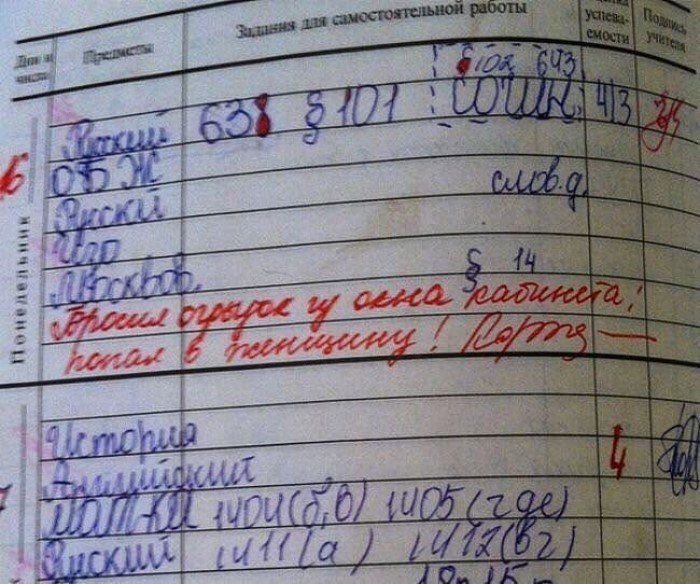 Дни и числа Предметы Задания для самостоятельной работы успева- емости Подпись учителя
§102 643
16 Русский 638 § 101 сочин. 4/3
ОБЖ
Русский слов.д.
Изо
Москвов. § 14
Понедельник
Бросил огрызок из окна кабинета,
попал в женщину!
История
Английский 4
7 Мат-ка 1404(б,в) 1405(где)
Русский 1411(а) 1412(вг)